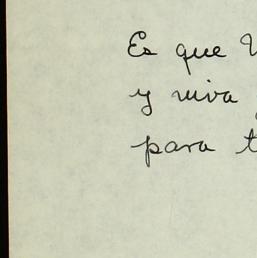 Es que
y viva
para